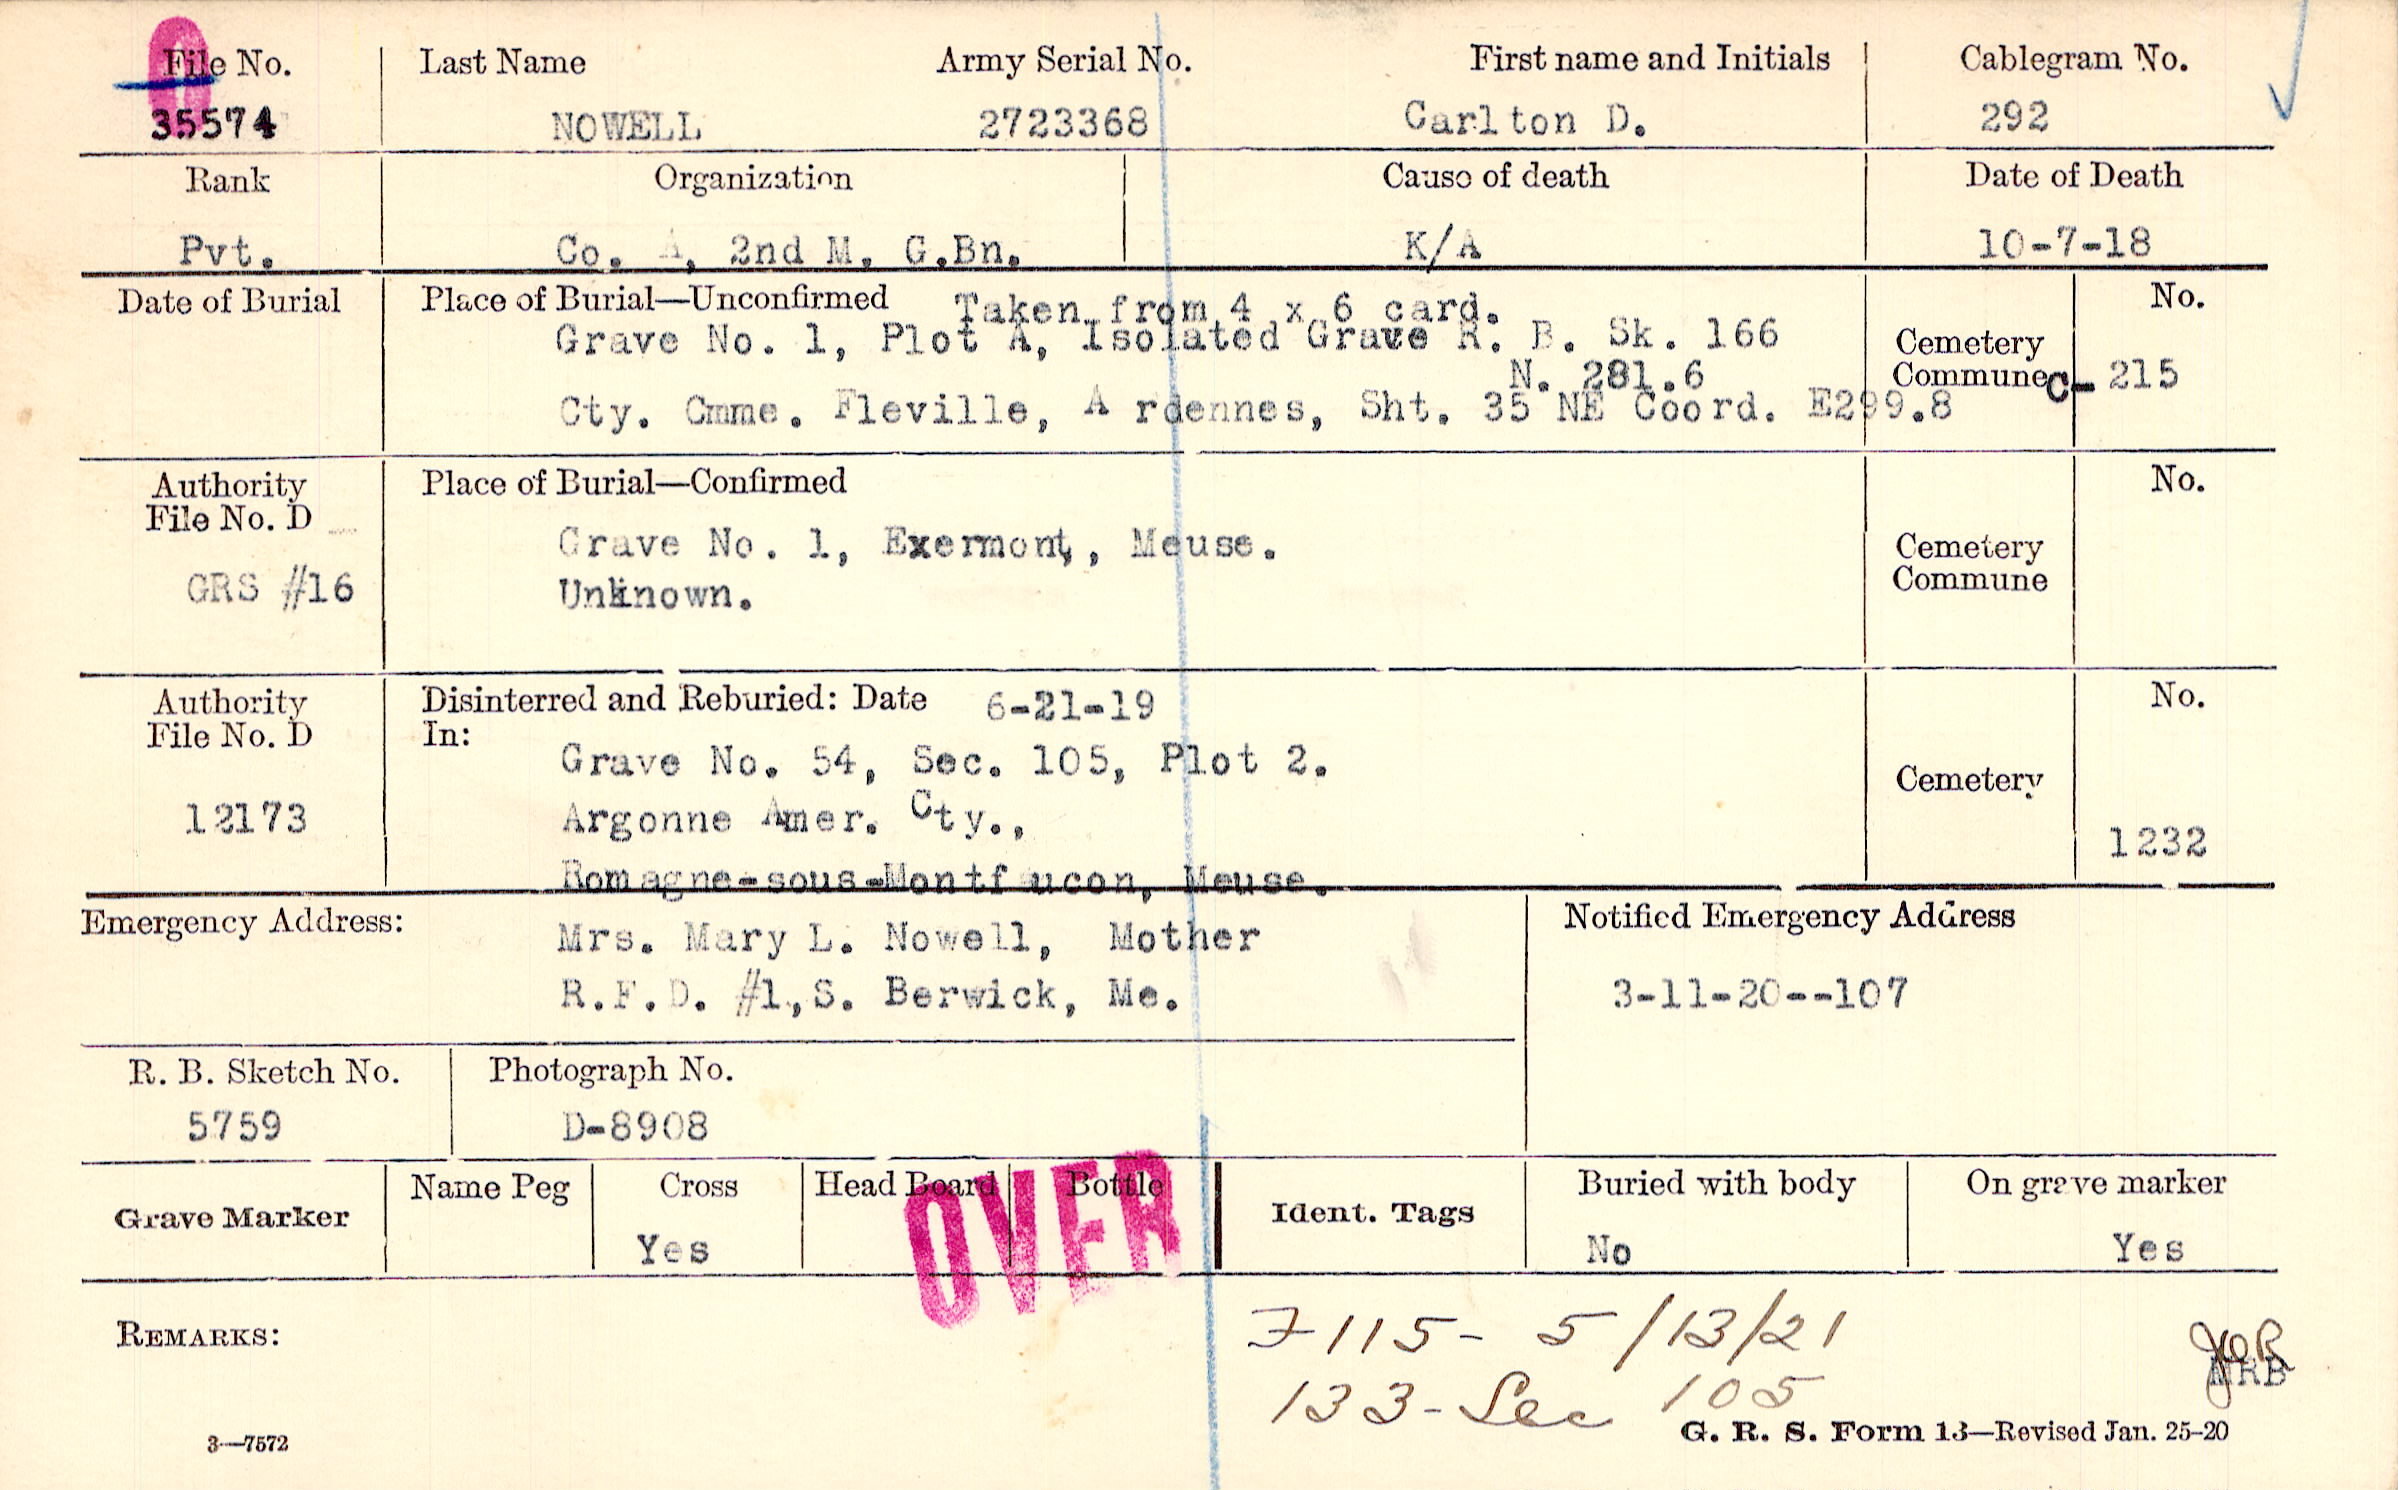 File No. Last Name Army Serial No. First name and Initials Cablegram No.
35574 NOWELL 2723368 Carlton D. 292
Rank Organization Cause of death Date of Death
Pvt. Co. A, 2nd M. G.Bn. K/A 10-7-18
Date of Burial Place of Burial—Unconfirmed Taken from 4 x 6 card. No.
Grave No. 1, Plot A, Isolated Grave R. B. Sk. 166
Cemetery
N. 281.6
Commune C- 215
Cty. Cmme. Fleville, A rdennes, Sht. 35 NE Coord. E299.8
Authority Place of Burial—Confirmed No.
File No. D
Grave No. 1, Exermont, Meuse. Cemetery
GRS #16 Unknown. Commune
Authority Disinterred and Reburied: Date 6-21-19 No.
File No. D In:
Grave No. 54, Sec. 105, Plot 2.
Cemetery
12173 Argonne Amer. Cty.,
1232
Romagne-sous-Montfaucon, Meuse.
Emergency Address: Mrs. Mary L. Nowell, Mother Notified Emergency Address
R.F.D. #1,S. Berwick, Me. 3-11-20--107
R. B. Sketch No. Photograph No.
5759 D-8908
Grave Marker Name Peg Cross Head Board Bottle Ident. Tags Buried with body On grave marker
Yes No Yes
OVER
REMARKS: 7115- 5/13/21
MRB
133-Sec 105
3—7572 G. R. S. Form 13—Revised Jan. 25-20